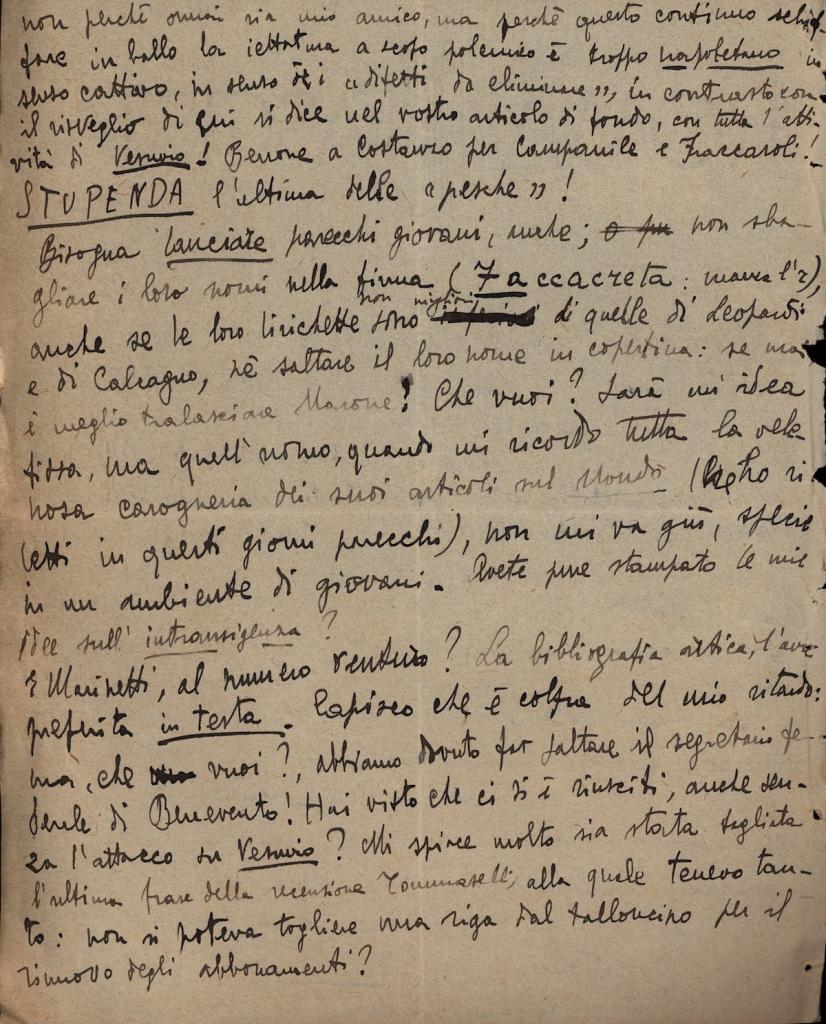 non perché ormai sia mio amico, ma perché questo continuo
fare in ballo la iettatura a scopo polemico è troppo napoletano in
senso cattivo, in senso di « difetti da eliminare », in contrasto con
il risveglio di cui si dice nel vostro articolo di fondo, con tutta l'atti-
vità di Vesuvio! Benone a Costanzo per Campanile e Fraccaroli!
STUPENDA l'ultima delle « pesche »!
Bisogna lanciare parecchi giovani, anche; non sba-
gliare i loro nomi nella firma (Faccacreta: manca l'r),
anche se le loro lirichette sono non migliori di quelle di Leopardi
e di Calcagno, né saltare il loro nome in copertina: se mai
è meglio tralasciare Marone! Che vuoi? Sarà un'idea
fissa, ma quell'uomo, quando mi ricordo tutta la vele-
nosa carogneria dei suoi articoli sul Mondo (ne ho ri-
letti in questi giorni parecchi), non mi va giù, specie
in un ambiente di giovani. Avete pure stampato le mie
idee sull'intransigenza?
E Marinetti, al numero venturo? La bibliografia critica, l'avrei
preferita in testa. Capisco che è colpa del mio ritardo:
ma, che vuoi?, abbiamo dovuto far saltare il segretario fe-
derale di Benevento! Hai visto che ci si è riusciti, anche sen-
za l'attacco su Vesuvio? Mi spiace molto sia stata tagliata
l'ultima frase della recensione Tommaselli, alla quale tenevo tan-
to: non si poteva togliere una riga dal talloncino per il
rinnovo degli abbonamenti?